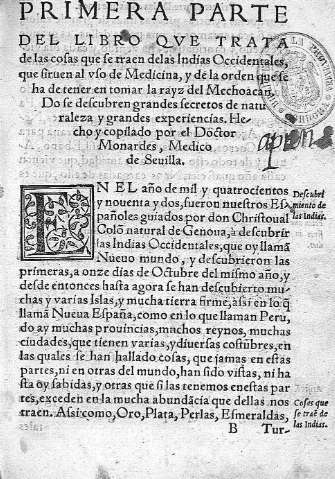 PRIMERA PARTE
DEL LIBRO QVE TRATA
de las cosas que se traen de las Indias Occidentales,
que siruen al vso de Medicina, y de la orden que se
ha de tener en tomar la rayz del Mechoacan.
Do se descubren grandes secretos de natu
raleza y grandes experiencias. He-
cho y copilado por el Doctor
Monardes, Medico
de Seuilla.
EN EL año de mil y quatrocientos
y nouenta y dos, fueron nuestros Es
pañoles guiados por don Christoual
Colõ natural de Genoua, à descubrir
las Indias Occidentales, que oy llamã
Nueuo mundo, y descubrieron las
primeras, a onze dias de Octubre del mismo año, y
desde entonces hasta agora se han descubierto mu-
chas y varias Islas, y mucha tierra firme, assi en lo q̃
llamã Nueua España, como en lo que llaman Peru,
do ay muchas prouincias, muchos reynos, muchas
ciudades, que tienen varias, y diuersas costũbres, en
las quales se han hallado cosas, que jamas en estas
partes, ni en otras del mundo, han sido vistas, ni ha
sta oy sabidas, y otras que si las tenemos en estas par
tes, exceden en la mucha abundãcia que dellas nos
traen. Assi como, Oro, Plata, Perlas, Esmeraldas,
B Tur-
Descubri
miento de
las Indias.
Cosas que
se traẽ de
las Indias.